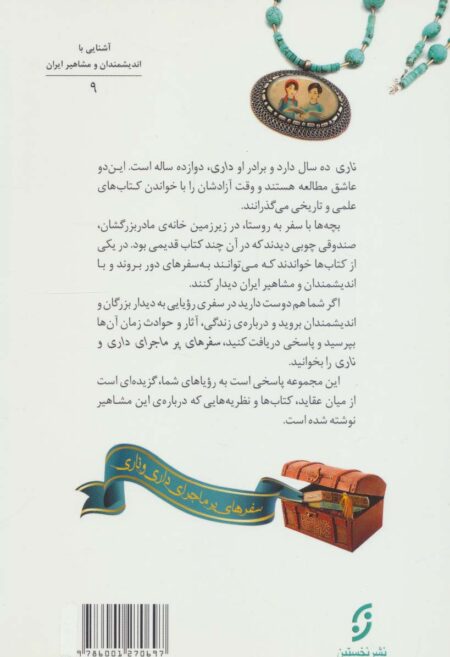 آشنایی با
اندیشمندان و مشاهیر ایران
۹
ناری ده سال دارد و برادر او داری، دوازده ساله است. این‌دو
عاشق مطالعه هستند و وقت آزادشان را با خواندن کتاب‌های
علمی و تاریخی می‌گذرانند.
بچه‌ها با سفر به روستا، در زیرزمین خانه‌ی مادربزرگشان،
صندوقی چوبی دیدند که در آن چند کتاب قدیمی بود. در یکی
از کتاب‌ها خواندند که می‌توانند به‌سفرهای دور بروند و با
اندیشمندان و مشاهیر ایران دیدار کنند.
اگر شما هم دوست دارید در سفری رؤیایی به دیدار بزرگان و
اندیشمندان بروید و درباره‌ی زندگی، آثار و حوادث زمان آن‌ها
بپرسید و پاسخی دریافت کنید، سفرهای پر ماجرای داری و
ناری را بخوانید.
این مجموعه پاسخی است به رؤیاهای شما، گزیده‌ای است
از میان عقاید، کتاب‌ها و نظریه‌هایی که درباره‌ی این مشاهیر
نوشته شده است.
سفرهای پر ماجرای داری و ناری
نشر نخستین
9 786001 270697